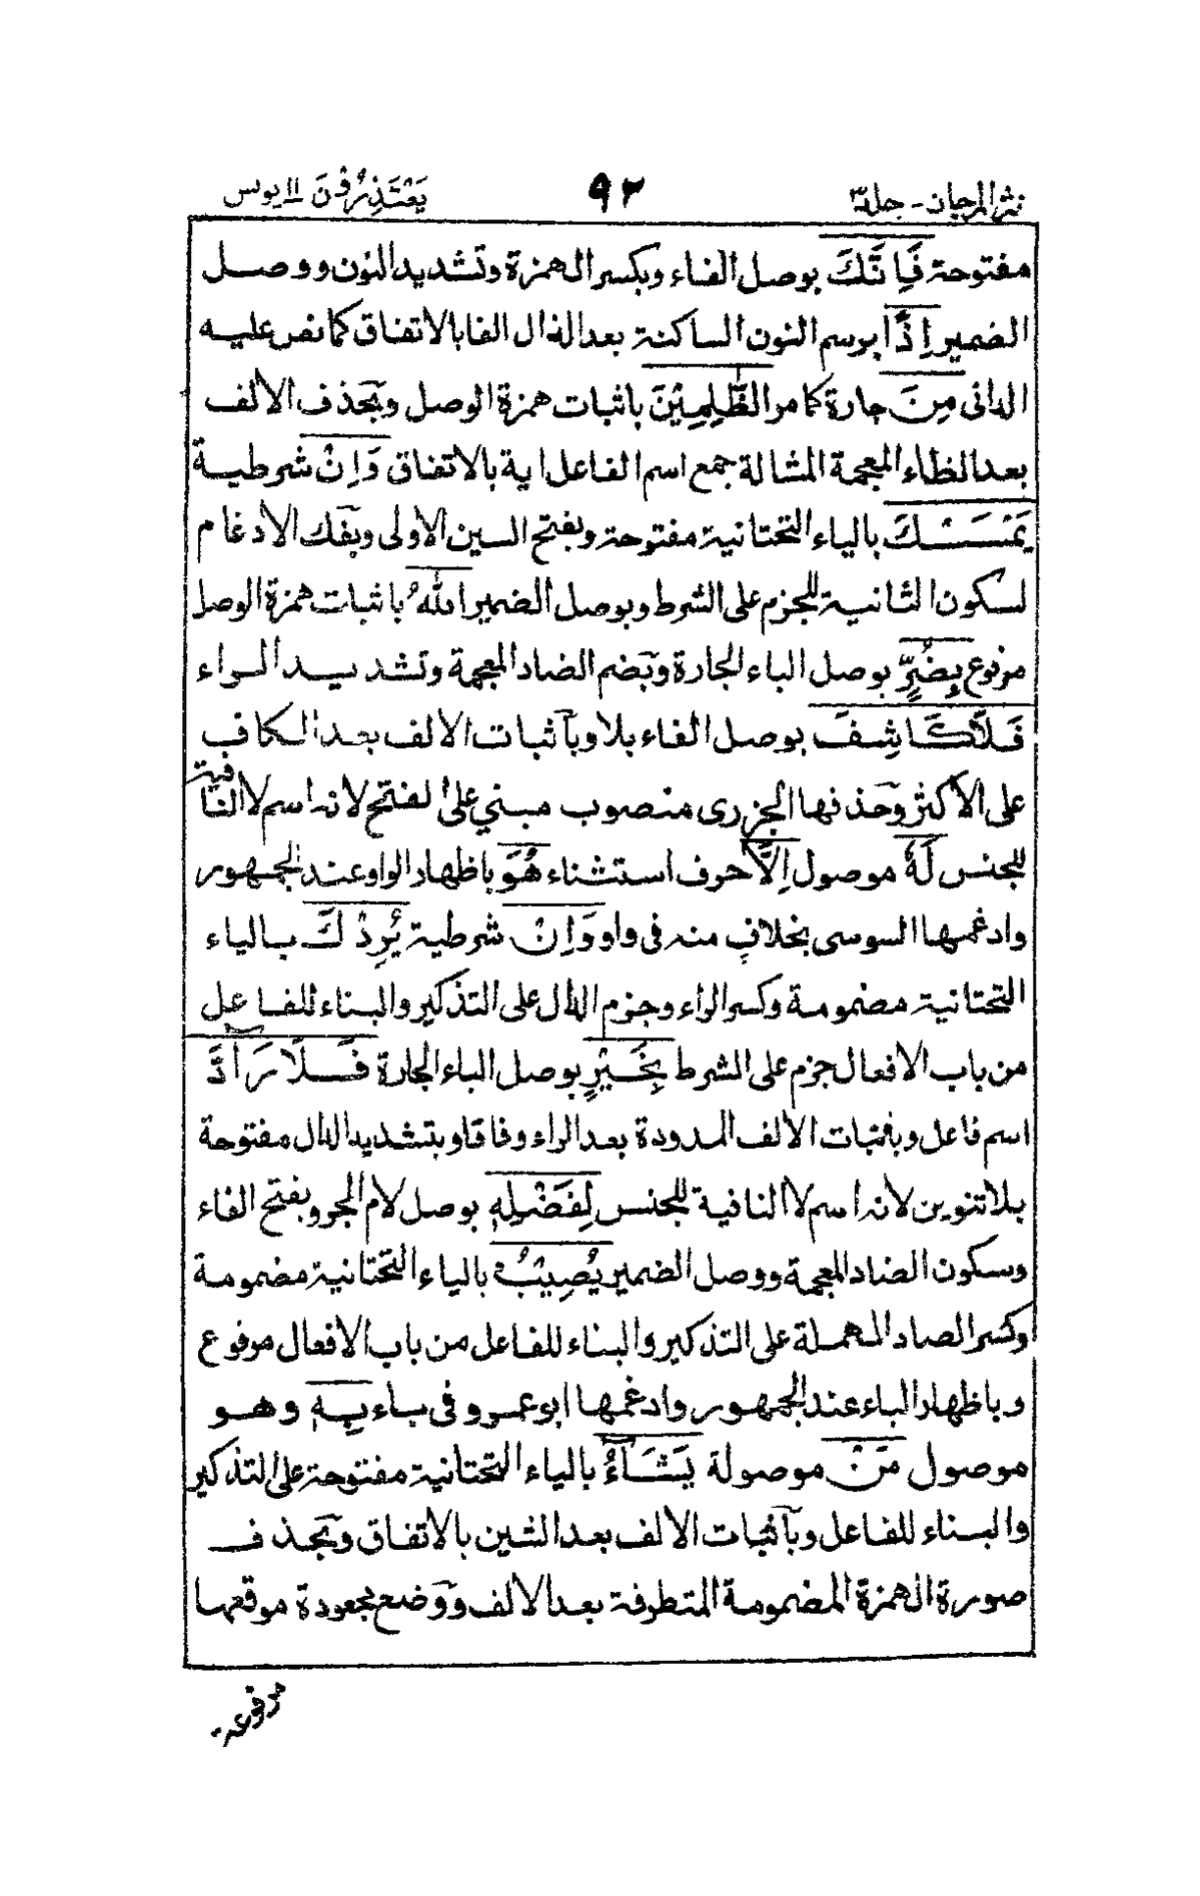 نثر المرجان - جلد ٣ ٩٢ يَعْتَذِرُوْنَ ١١ يونس
مفتوحة فَاِنَّكَ بوصل الفاء وبكسر الهمزة وتشديد النون ووصل
الضمير اِذًا برسم النون الساكنة بعد الذال الفا بالاتفاق كما نص عليه
الدانى مِنَ جارة كما مر الظّٰلِمِيْنَ باثبات همزة الوصل وبحذف الالف
بعد الظاء المعجمة المشالة جمع اسم الفاعل اية بالاتفاق وَاِنْ شرطية
يَمْسَسْكَ بالياء التحتانية مفتوحة وبفتح السين الاولى وبفك الادغام
لسكون الثانية للجزم على الشرط وبوصل الضمير اللّٰهُ باثبات همزة الوصل
مرفوع بِضُرٍّ بوصل الباء الجارة وبضم الضاد المعجمة وتشديد الراء
فَلَا كَاشِفَ بوصل الفاء بلا وباثبات الالف بعد الكاف
على الاكثر وحذفها الجزرى منصوب مبني على الفتح لانه اسم لا النافية
للجنس لَهٗ موصول اِلَّا حرف استثناء هُوَ باظهار الواو عند الجمهور
وادغمها السوسى بخلاف منه فى واو وَاِنْ شرطية يُرِدْكَ بالياء
التحتانية مضمومة وكسر الراء وجزم الدال على التذكير والبناء للفاعل
من باب الافعال جزم على الشرط بِخَيْرٍ بوصل الباء الجارة فَلَا رَآدَّ
اسم فاعل وباثبات الالف الممدودة بعد الراء وفاقا وبتشديد الدال مفتوحة
بلا تنوين لانه اسم لا النافية للجنس لِفَضْلِهٖ بوصل لام الجر وبفتح الفاء
وسكون الضاد المعجمة ووصل الضمير يُصِيْبُ بالياء التحتانية مضمومة
وكسر الصاد المهملة على التذكير والبناء للفاعل من باب الافعال مرفوع
وباظهار الباء عند الجمهور وادغمها ابو عمرو فى باء بِهٖ وهو
موصول مَنْ موصولة يَشَآءُ بالياء التحتانية مفتوحة على التذكير
والبناء للفاعل وباثبات الالف بعد الشين بالاتفاق وبحذف
صورة الهمزة المضمومة المتطرفة بعد الالف ووضع مجعودة موقعها
مرفوعة